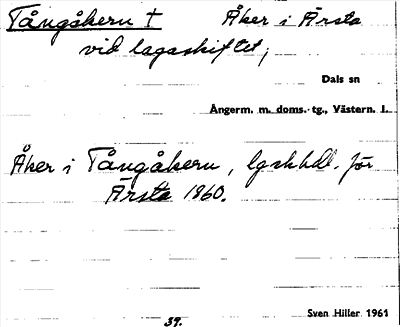 Tångåkern † Åker i Ärsta
vid lagaskiftet;
Dals sn
Ångerm. m. doms.-tg., Västern. l.
Åker i Tångåkern, lgskhdl. för
Ärsta 1860.
Sven Hiller 1961
39.